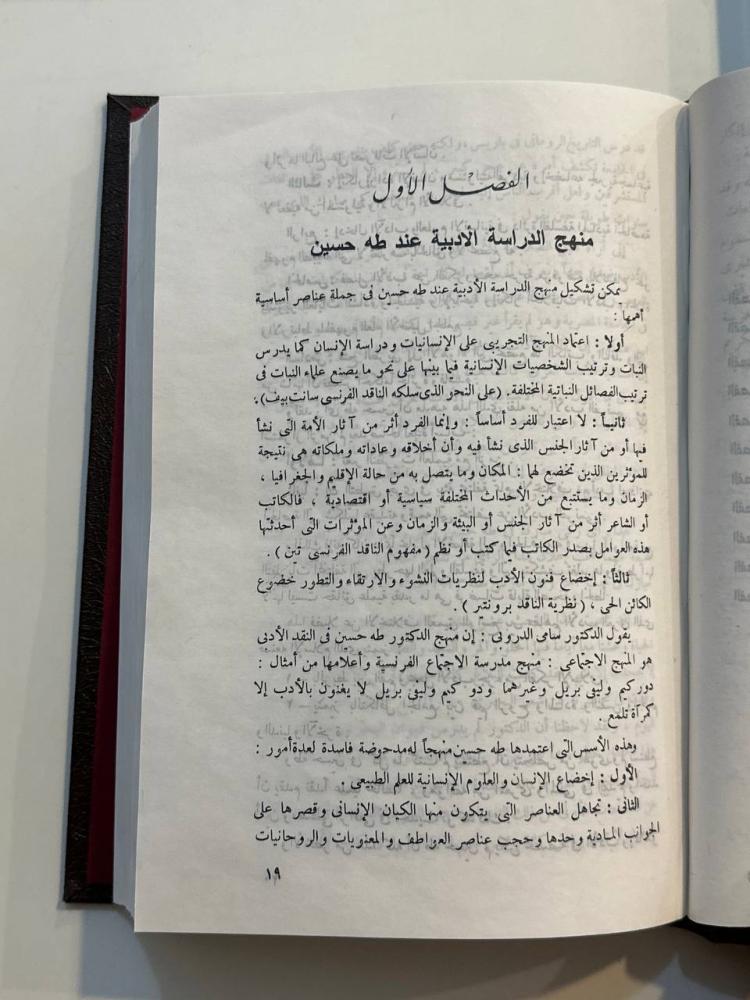 الفصل الأول
منهج الدراسة الأدبية عند طه حسين
يمكن تشكيل منهج الدراسة الأدبية عند طه حسين فى جملة عناصر أساسية
أهمها :
أولا : اعتماد المنهج التجريبى على الإنسانيات ودراسة الإنسان كما يدرس
النبات وترتيب الشخصيات الإنسانية فيما بينها على نحو ما يصنع علماء النبات فى
ترتيب الفصائل النباتية المختلفة . (على النحو الذى سلكه الناقد الفرنسى سانت بيف).
ثانياً : لا اعتبار للفرد أساساً : وإنما الفرد أثر من آثار الأمة التى نشأ
فيها أو من آثار الجنس الذى نشأ فيه وأن أخلاقه وعاداته وملكاته هى نتيجة
للمؤثرين الذين تخضع لهما : المكان وما يتصل به من حالة الإقليم والجغرافيا ،
الزمان وما يستتبع من الأحداث المختلفة سياسية أو اقتصادية ، فالكاتب
أو الشاعر أثر من آثار الجنس أو البيئة والزمان وعن المؤثرات التى أحدثتها
هذه العوامل يصدر الكاتب فيما كتب أو نظم ( مفهوم الناقد الفرنسى تين ) .
ثالثاً : إخضاع فنون الأدب لنظريات النشوء والارتقاء والتطور خضوع
الكائن الحى ، ( نظرية الناقد برونتير ) .
يقول الدكتور سامى الدروبى : إن منهج الدكتور طه حسين فى النقد الأدبى
هو المنهج الاجتماعى : منهج مدرسة الاجتماع الفرنسية وأعلامها من أمثال :
دوركيم وليفى بريل وغيرهما ودو كيم وليفى بريل لا يغنون بالأدب إلا
كمرآة تلمع .
وهذه الأسس التى اعتمدها طه حسين منهجاً له مدحوضة فاسدة لعدة أمور :
الأول : إخضاع الإنسان والعلوم الإنسانية للعلم الطبيعى .
الثانى : تجاهل العناصر التى يتكون منها الكيان الإنسانى وقصرها على
الجوانب المادية وحدها وحجب عناصر العواطف والمعنويات والروحانيات
١٩